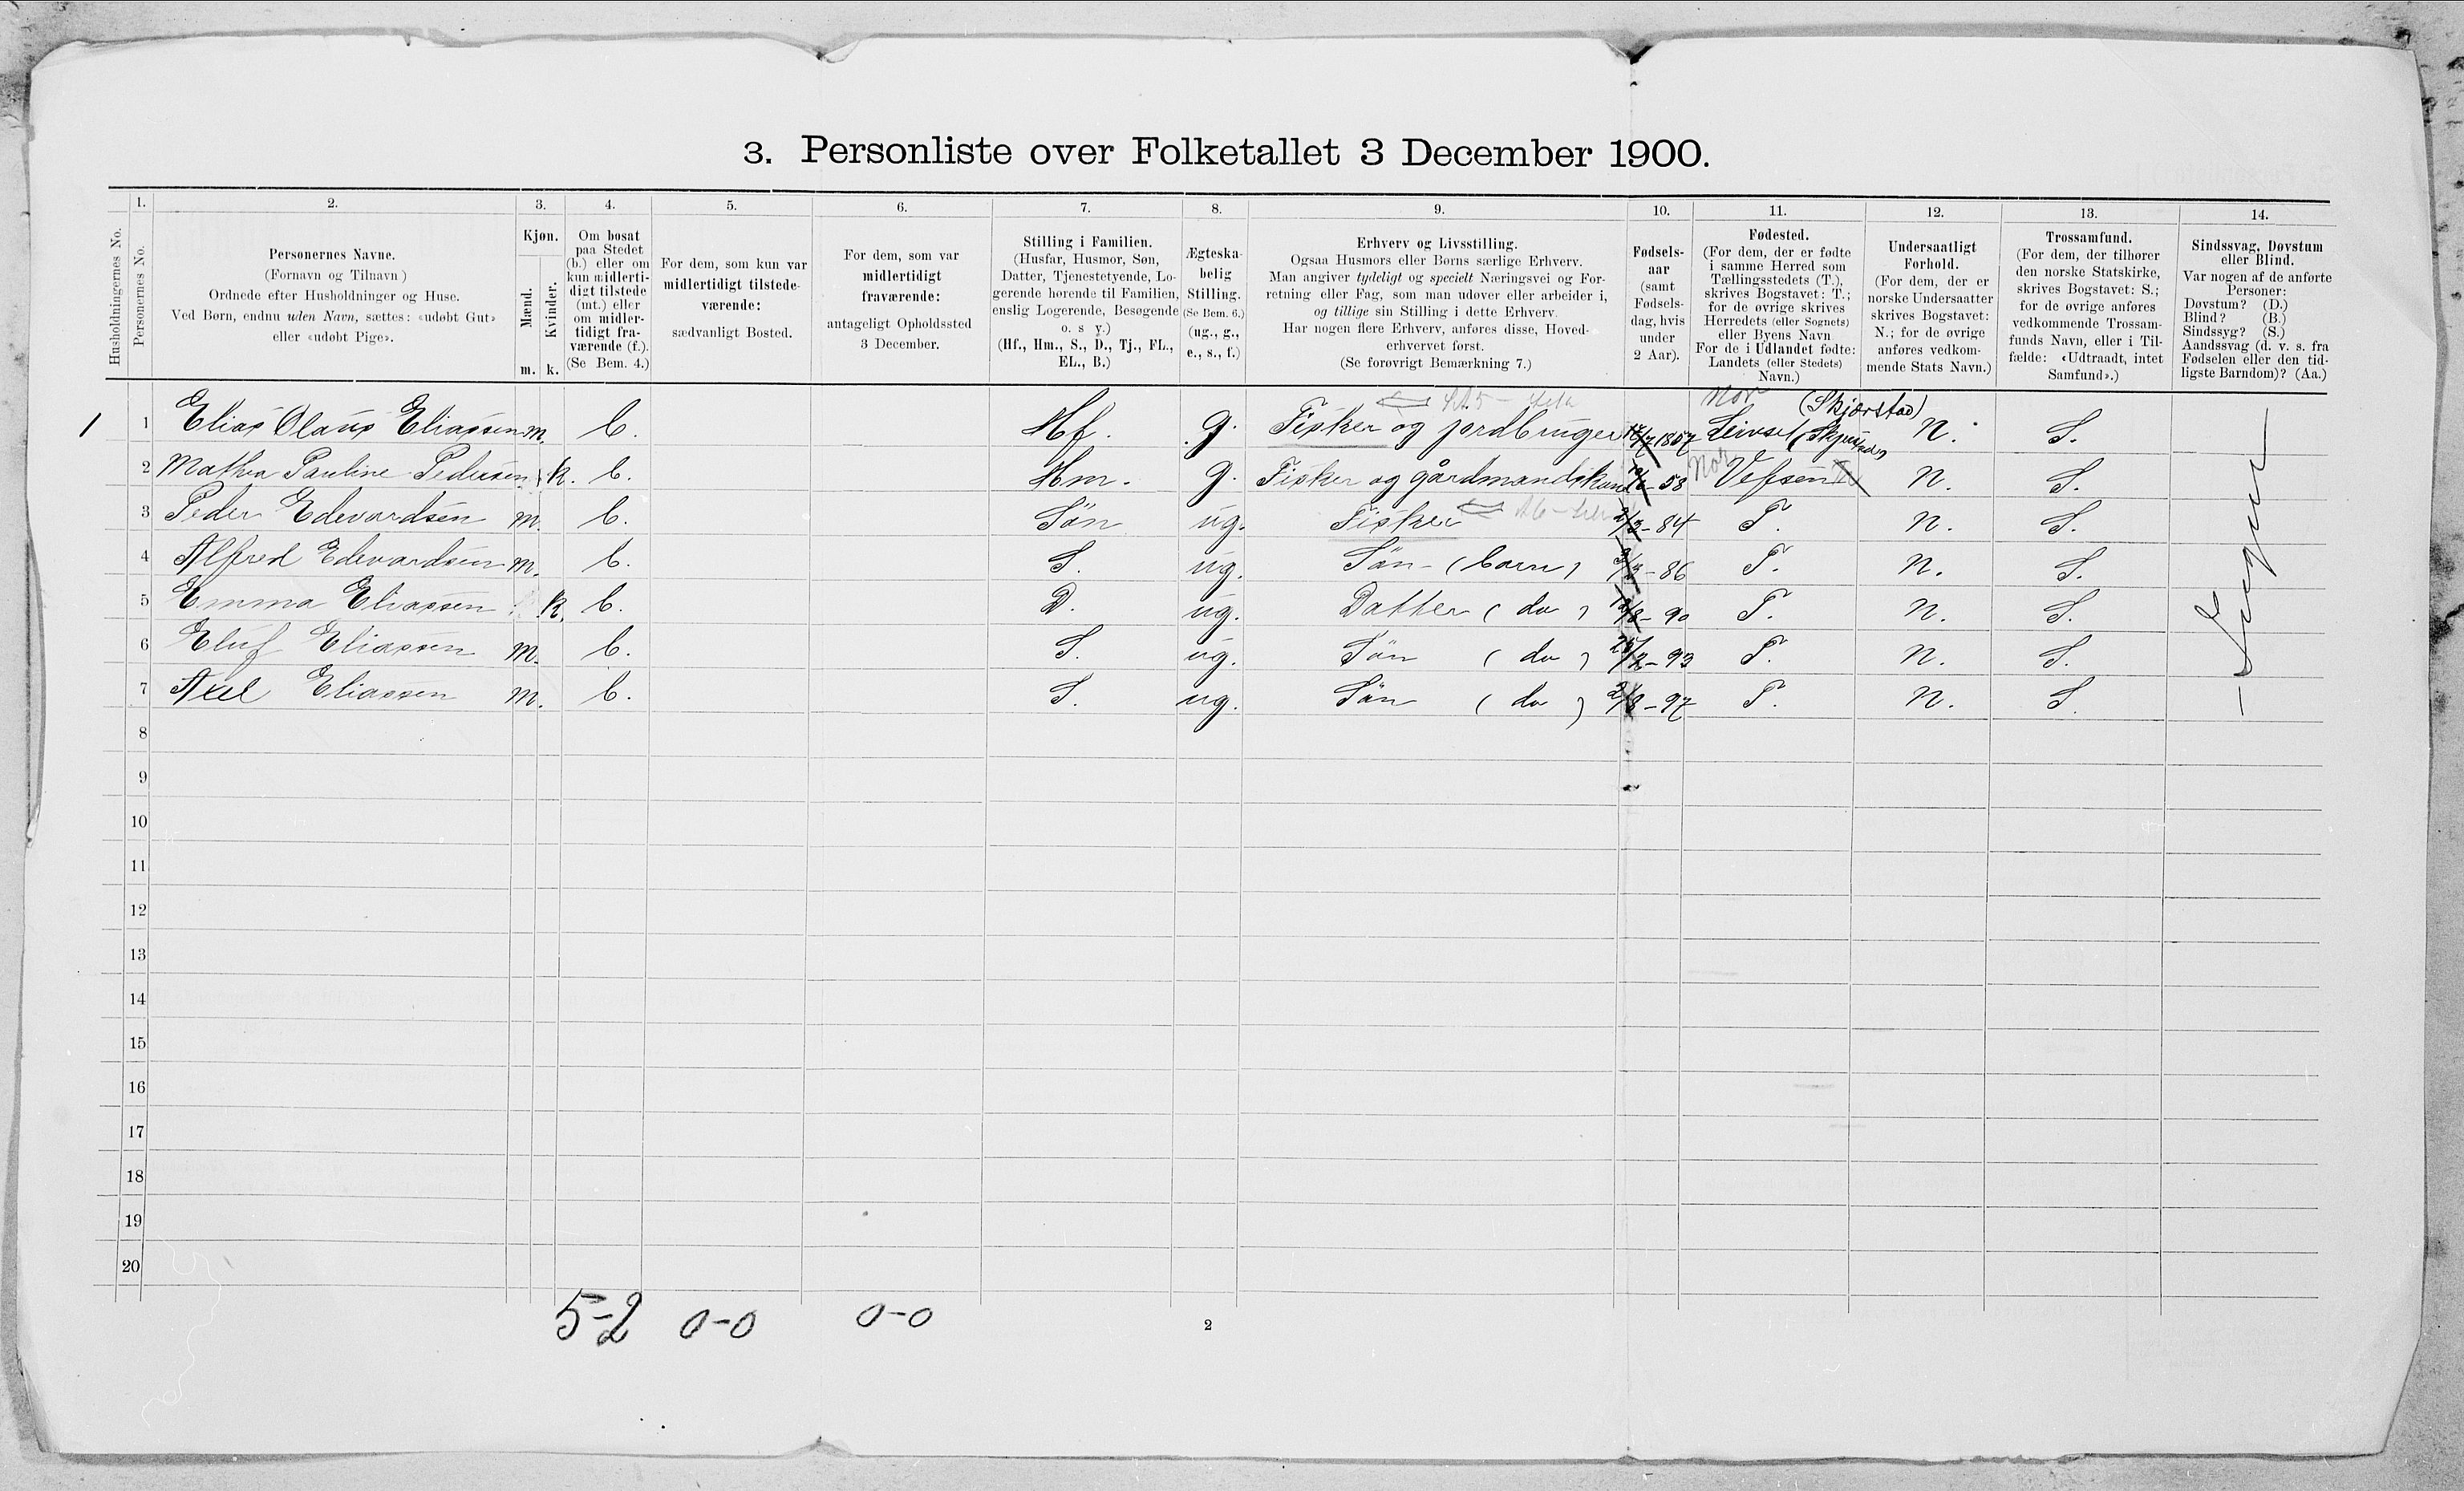 3. Personliste over Folketallet 3 December 1900.
Husholdningernes No.
1. Personernes No.
2.
Personernes Navne.
(Fornavn og Tilnavn)
Ordnede efter Husholdninger og Huse.
Ved Børn, endnu uden Navn, sættes: «udøbt Gut»
eller «udøbt Pige».
3.
Kjøn.
Mænd. m.
Kvinder. k.
4.
Om bosat
paa Stedet
(b.) eller om
kun midlerti-
digt tilstede
(mt.) eller
om midler-
tidigt fra-
værende (f.).
(Se Bem. 4.)
5.
For dem, som kun var
midlertidigt tilstede-
værende:
sædvanligt Bosted.
6.
For dem, som var
midlertidigt
fraværende:
antageligt Opholdssted
3 December.
7.
Stilling i Familien.
(Husfar, Husmor, Søn,
Datter, Tjenestetyende, Lo-
gerende hørende til Familien,
enslig Logerende, Besøgende
o. s v.)
(Hf., Hm., S., D., Tj., FL.,
EL., B.)
8.
Ægteska-
belig
Stilling.
(Se Bem. 6.)
(ug., g.,
e., s., f.)
9.
Erhverv og Livsstilling.
Ogsaa Husmors eller Børns særlige Erhverv.
Man angiver tydeligt og specielt Næringsvei og For-
retning eller Fag, som man udøver eller arbeider i,
og tillige sin Stilling i dette Erhverv.
Har nogen flere Erhverv, anføres disse, Hoved-
erhvervet først.
(Se forøvrigt Bemærkning 7.)
10.
Fødsels-
aar
(samt
Fødsels-
dag, hvis
under
2 Aar).
11.
Fødested.
(For dem, der er fødte
i samme Herred som
Tællingsstedets (T.),
skrives Bogstavet: T.;
for de øvrige skrives
Herredets (eller Sognets)
eller Byens Navn
For de i Udlandet fødte:
Landets (eller Stedets)
Navn.)
12.
Undersaatligt
Forhold.
(For dem, der er
norske Undersaatter
skrives Bogstavet:
N.; for de øvrige
anføres vedkom-
mende Stats Navn.)
13.
Trossamfund.
(For dem, der tilhører
den norske Statskirke,
skrives Bogstavet: S.;
for de øvrige anføres
vedkommende Trossam-
funds Navn, eller i Til-
fælde: «Udtraadt, intet
Samfund».)
14.
Sindssvag, Døvstum
eller Blind.
Var nogen af de anførte
Personer:
Døvstum? (D.)
Blind? (B.)
Sindssyg? (S.)
Aandssvag (d. v. s. fra
Fødselen eller den tid-
ligste Barndom)? (Aa.)
Nor (Skjerstad)
1 1 Elias Olaus Eliassen m. b. Hf. g. Fisker og jordbruger 17/7 1857 Leivset N. S.
2 Mathea Pauline Pedersen k. b. Hm. g. Fisker og gårdmandskone 58 Nor Vefsen N. S.
3 Peder Edevardsen m. b. Søn ug. Fisker 2/3-84 T. N. S.
4 Alfred Edevardsen m. b. S. ug. Søn - (barn) 3/3-86 T. N. S.
5 Emma Eliassen k. b. D. ug. Datter (do) 12/8-90 T. N. S.
6 Eluf Eliassen m. b. S. ug. Søn (do) 93 T. N. S.
7 Axel Eliassen m. b. S. ug. Søn (do) 2/8-97 T. N. S.
- Ingen -
8
9
10
11
12
13
14
15
16
17
18
19
20
5-2 0-0 0-0
2